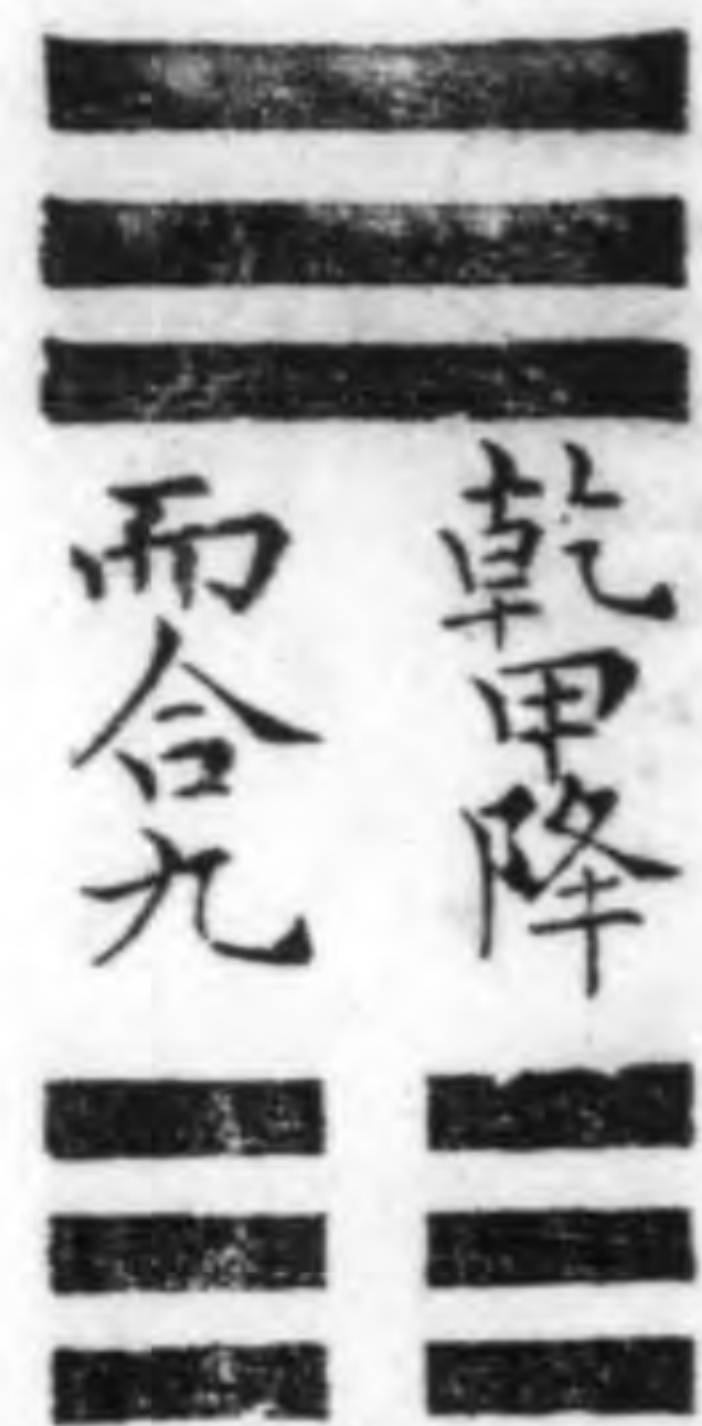 乾甲降
而合九